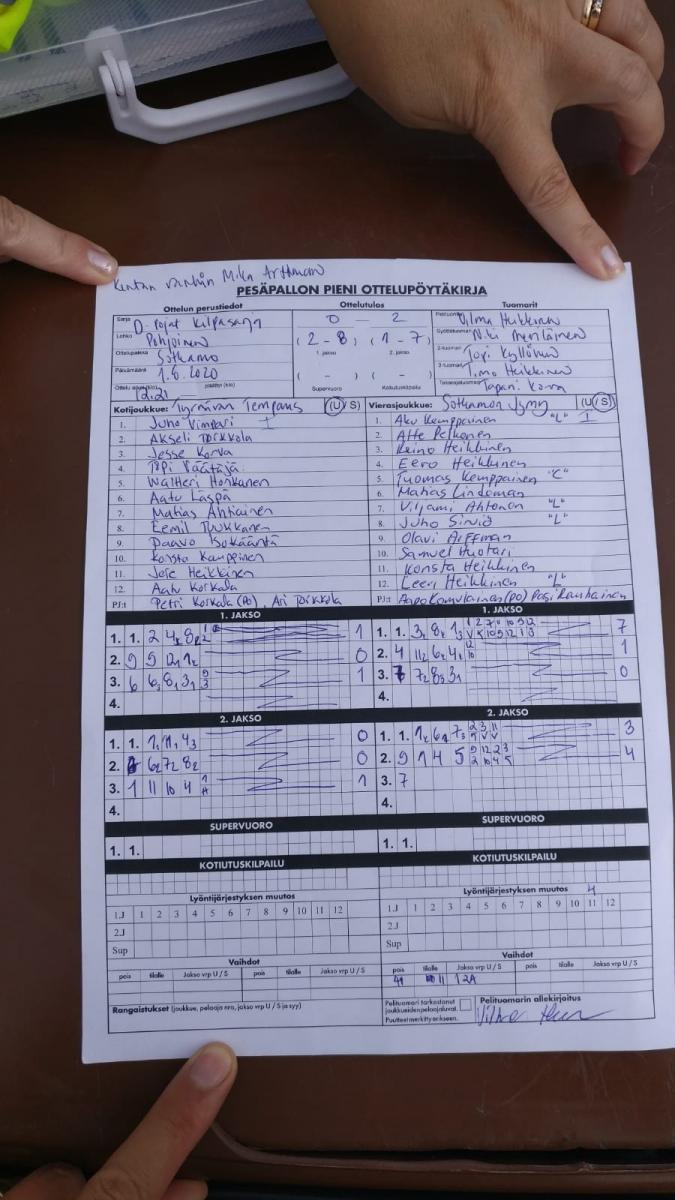 Mika Arffman
PESÄPALLON PIENI OTTELUPÖYTÄKIRJA
Ottelun perustiedot Ottelutulos Tuomarit
Sarja D-Pojat kilpasarja 0 – 2 Pelituomari Vilma Heikkinen
Lohko Pohjoinen (2 - 8) (1 - 7) Syöttötuomari Niki Meriläinen
Ottelupaikka Sotkamo 1. jakso 2. jakso 2-tuomari Topi Kyllönen
Päivämäärä 1.8.2020 ( - ) ( - ) 3-tuomari Timo Heikkinen
Supervuoro Kotiutuskilpailu Takarajatuomari Tapani Korva
Kotijoukkue: Tyrnävän Tempaus (U/S) Vierasjoukkue: Sotkamon Jymy (U/S)
1. Juho Vimpari I 1. Aku Kemppainen "L" I
2. Akseli Törkkola 2. Atte Pelkonen
3. Jesse Korva 3. Reino Heikkinen
4. Topi Väätäjä 4. Eero Heikkinen
5. Waltteri Honkanen 5. Tuomas Kemppainen "C"
6. Aatu Läspä 6. Matias Lindeman
7. Matias Ahtiainen 7. Viljami Ahtonen "L"
8. Eemil Tuukkanen 8. Juho Sirviö "L"
9. Paavo 9. Olavi Arffman
10. Konsta Kauppinen 10. Samuel Huotari
11. Jere Heikkinen 11. Konsta Heikkinen
12. Aatu Korkala 12. Leevi Heikkinen "L"
PJ:t Petri Korkala (PO), Ari Törkkola PJ:t Aapo Komulainen (PO) Pasi Rauhainen
1. JAKSO 1. JAKSO
1. 1. 2 4 8 1 1. 1. 3 8 1 7
2. 9 5 12 1 0 2. 4 11 6 4 1
3. 6 6 8 3 1 3. 7 7 8 3 0
4. 4.
2. JAKSO 2. JAKSO
1. 1. 1 11 4 0 1. 1. 1 6 7 3
2. 6 7 8 0 2. 9 1 4 5 4
3. 1 11 10 4 1 3. 7
4. 4.
SUPERVUORO SUPERVUORO
1. 1. 1. 1.
KOTIUTUSKILPAILU KOTIUTUSKILPAILU
Lyöntijärjestyksen muutos Lyöntijärjestyksen muutos 4
1.J 1 2 3 4 5 6 7 8 9 10 11 12 1.J 1 2 3 4 5 6 7 8 9 10 11 12
2.J 2.J
Sup Sup
Vaihdot Vaihdot
pois tilalle Jakso vrp U / S pois tilalle Jakso vrp U / S pois tilalle Jakso vrp U / S pois tilalle Jakso vrp U / S
11 12A
Rangaistukset (joukkue, pelaaja nro, jakso vrp U / S ja syy) Pelituomari tarkastanut joukkueiden pelaajaluvat. Puutteet merkitty oikseen. Pelituomarin allekirjoitus